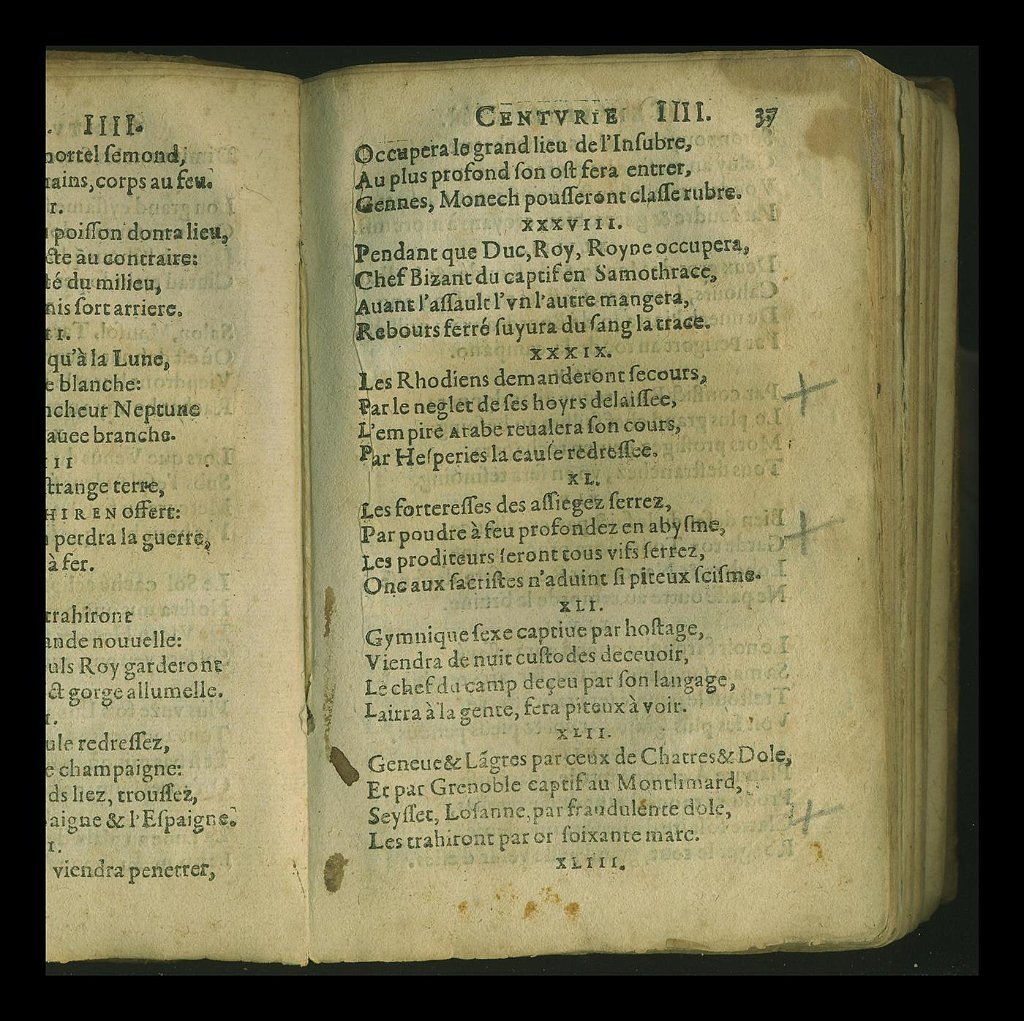 IIII.
mortel semond,
mains, corps au feu.
I.
poisson dontra lieu,
cte au contraire:
té du milieu,
nis sort arriere.
II.
qu'à la Lune,
e blanche:
ncheur Neptune
auee branche.
III
strange terre,
HIREN offert:
perdra la guerre,
à fer.
trahiront
ande nouuelle:
uls Roy garderont
ct gorge allumelle.
I.
ule redressez,
e champaigne:
ds liez, troussez,
aigne & l'Espaigne.
I.
viendra penetrer,
CENTVRIE IIII. 37
Occupera le grand lieu de l'Insubre,
Au plus profond son ost fera entrer,
Gennes, Monech pousseront classe rubre.
XXXVIII.
Pendant que Duc, Roy, Royne occupera,
Chef Bizant du captif en Samothrace,
Auant l'assault l'vn l'autre mangera,
Rebours ferré suyura du sang la trace.
XXXIX.
Les Rhodiens demanderont secours,
Par le neglet de ses hoyrs delaissee,
L'empire Arabe reualera son cours,
Par Hesperies la cause redressee.
XL.
Les forteresses des assiegez serrez,
Par poudre à feu profondez en abysme,
Les proditeurs seront tous vifs serrez,
Onc aux sacristes n'aduint si piteux scisme.
XLI.
Gymnique sexe captiue par hostage,
Viendra de nuit custodes deceuoir,
Le chef du camp deçeu par son langage,
Lairra à la gente, fera piteux à voir.
XLII.
Geneue & Lãgres par ceux de Chatres & Dole,
Et par Grenoble captif au Montlimard,
Seysset, Losanne, par fraudulente dole,
Les trahiront par or soixante marc.
XLIII.